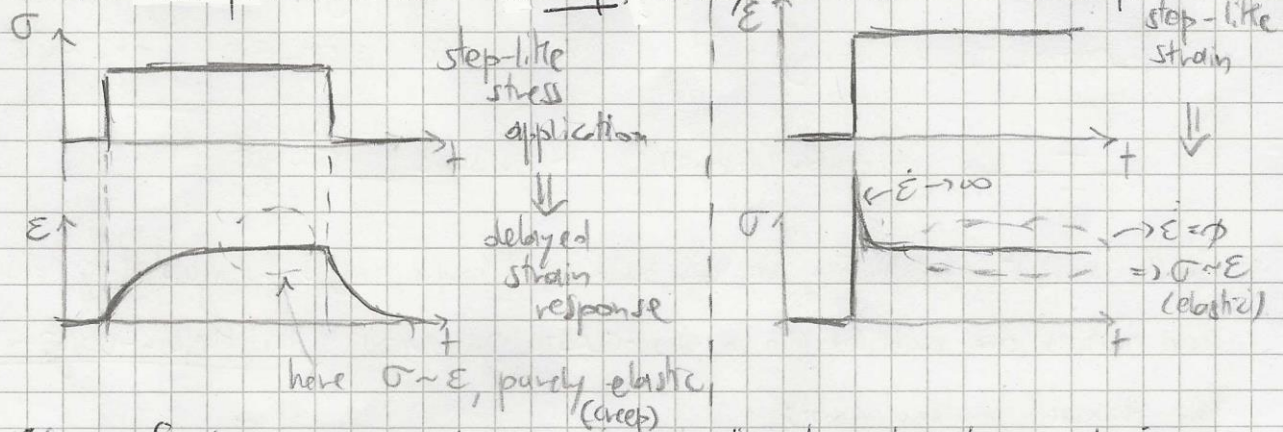 σ
step-like
stress
application
⇓
t
ε
delayed
strain
response
t
here σ~ε, purely elastic
(creep)
ε
step-like
strain
⇓
t
← ε̇→∞
σ
→ ε̇=ϕ
=> σ~ε
(elastic)
t